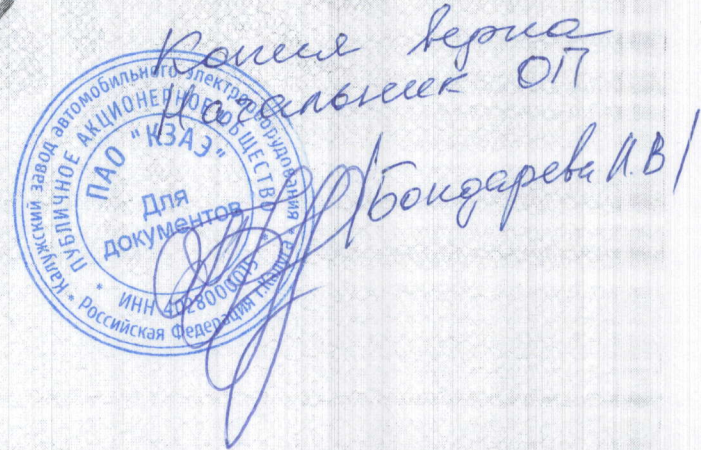 Копия верна
Начальник ОП
/Бондарева И.В/
Калужский завод автомобильного электрооборудования *
Российская Федерация г.Калуга *
ПУБЛИЧНОЕ АКЦИОНЕРНОЕ ОБЩЕСТВО
* ИНН *
ПАО "КЗАЭ"
Для
документов